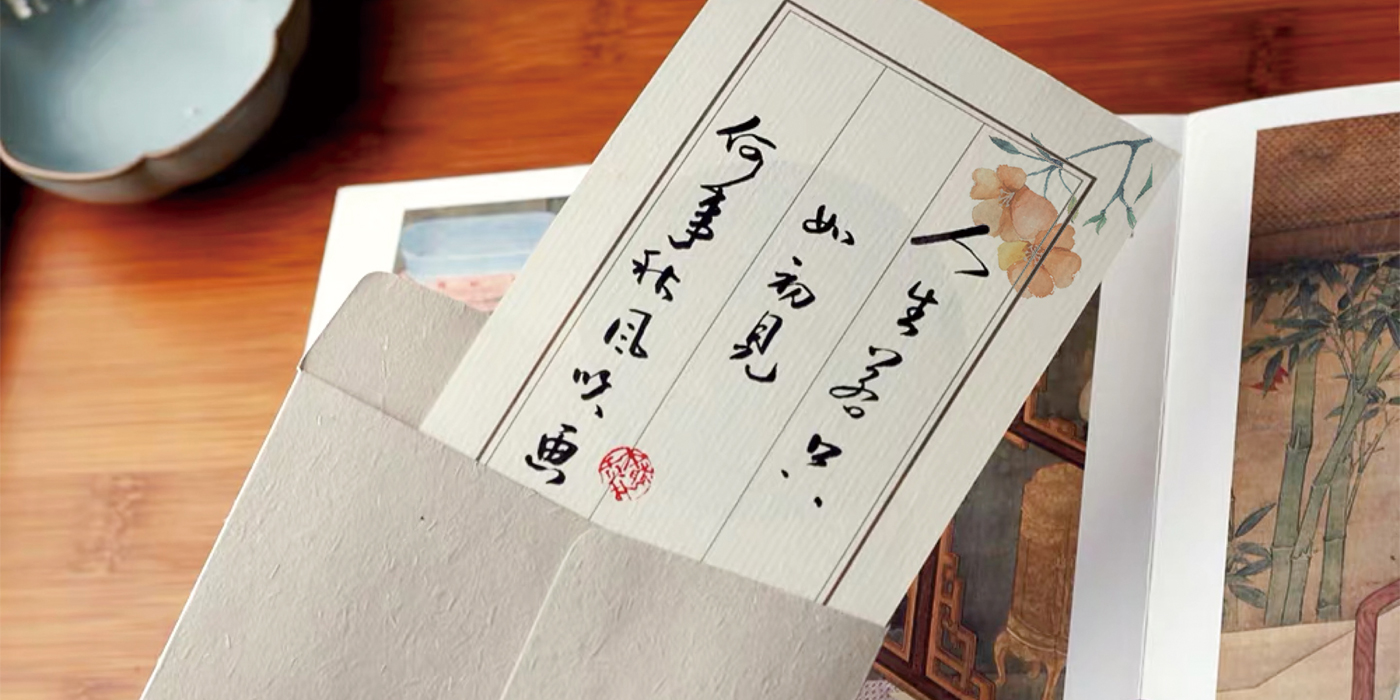 人生若只
如初見
何事秋风悲画